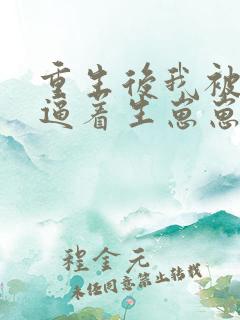 重生後我被
逼着生崽崽
程金元
未经同意禁止转载